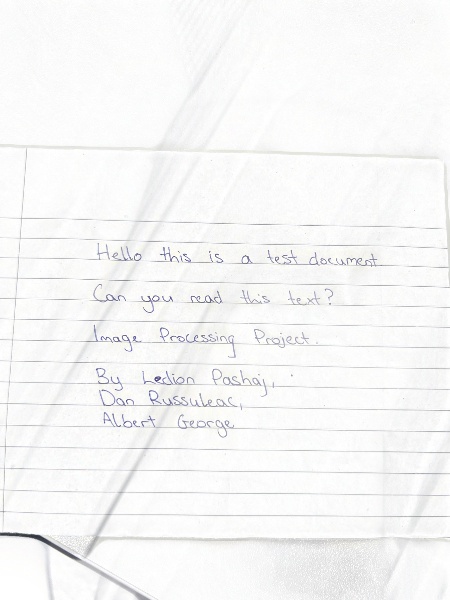 Hello this is a test document
Can you read this text?
Image Processing Project.
By Ledion Pashaj,
Dan Russuleac,
Albert George